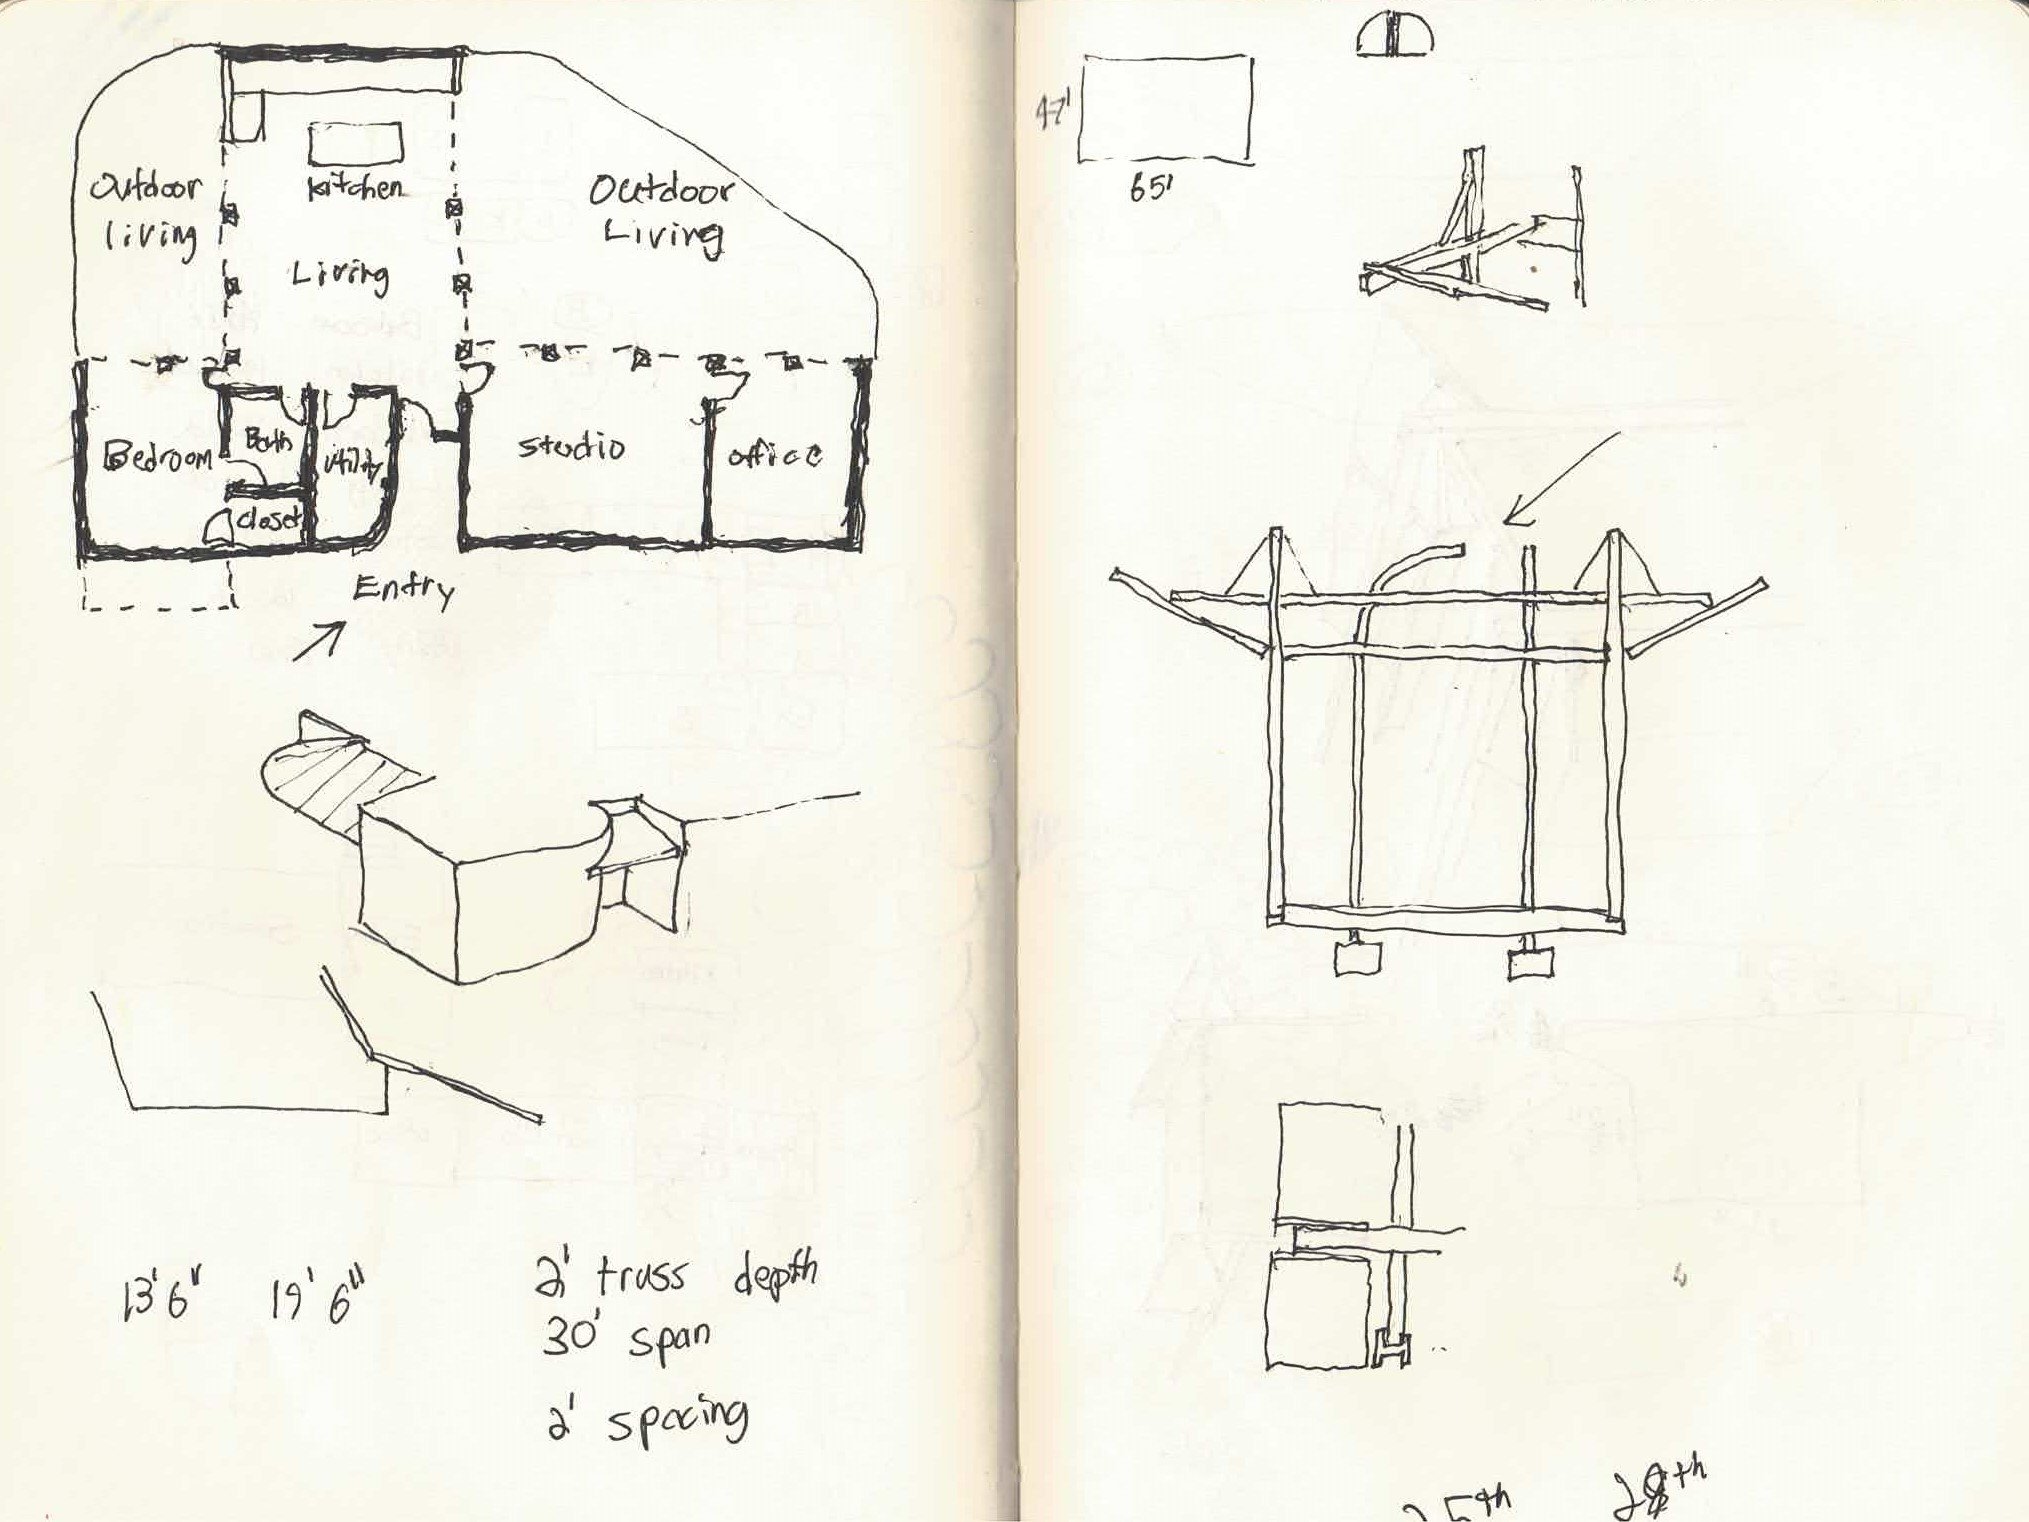 Outdoor
living
Kitchen
Living
Outdoor
Living
Bedroom
Bath
Utility
closet
studio
office
Entry
13'6" 19'6"
2' truss depth
30' span
2' spacing
47'
65'
25th 28th